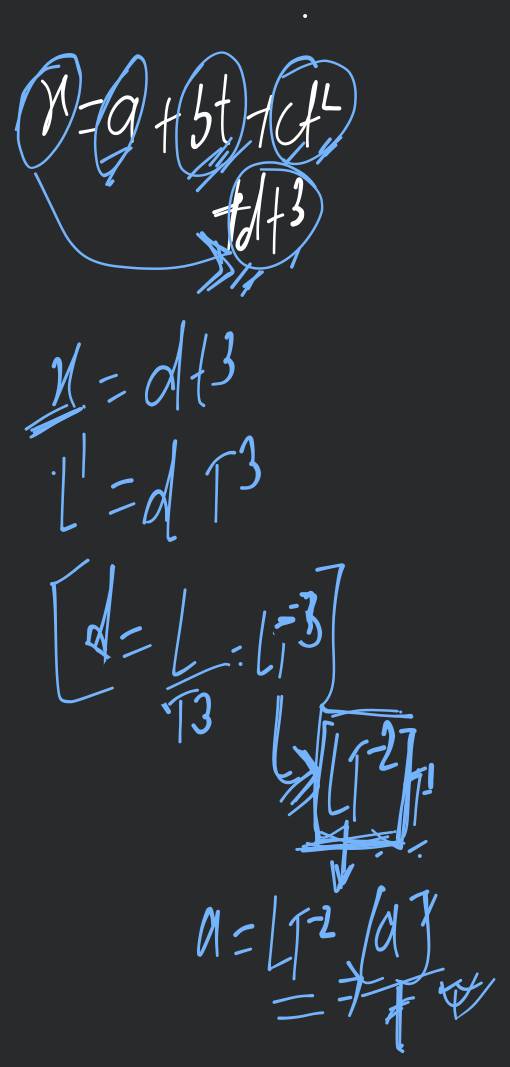 x = a + bt + ct²
+dt3
x = dt3
L¹ = d T3
[d = L/T3 = LT-3]
[LT-2] T-1
a = LT-2 [a]/T